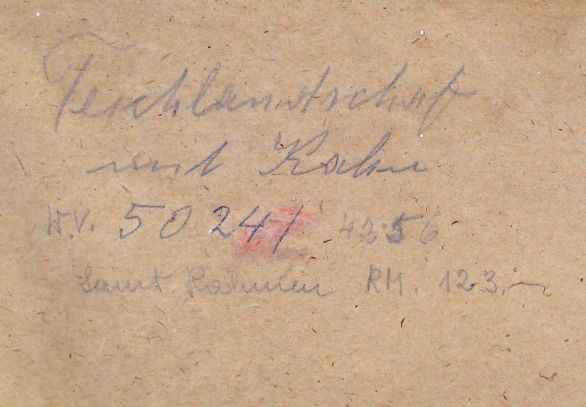 Teichlandschaft
mit Kahn
W.V. 50241 42:56
Samt Rahmen RM. 123.-